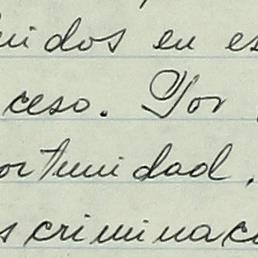 nidos en es
ceso. Por
ortunidad.
s criminac